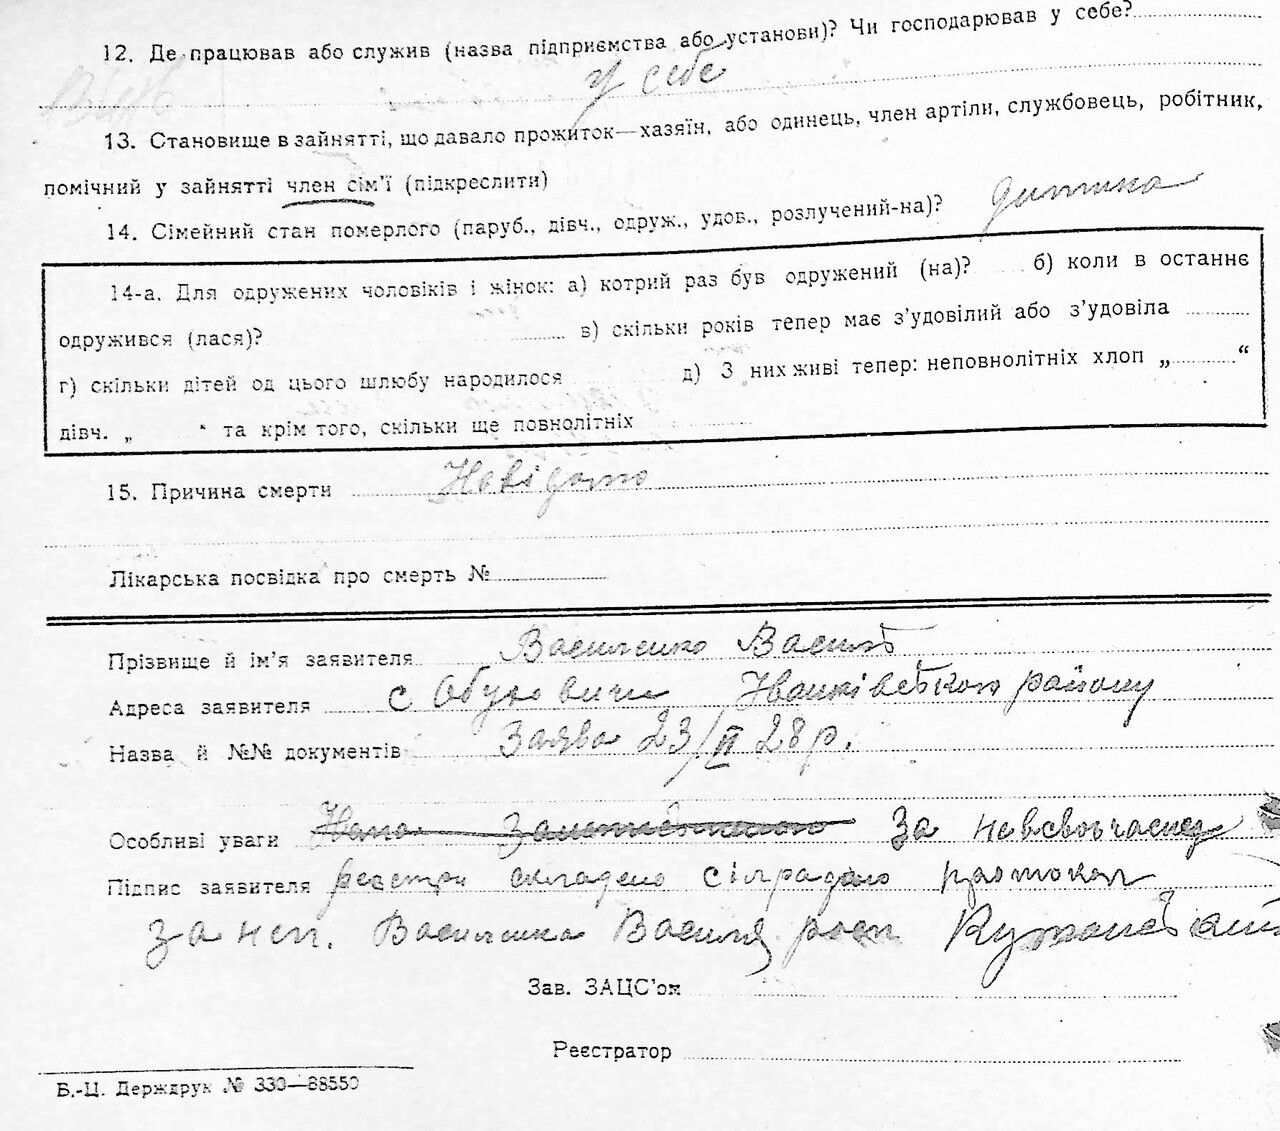 12. Де працював або служив (назва підприємства або установи)? Чи господарював у себе?
у себе
13. Становище в зайнятті, що давало прожиток—хазяїн, або одинець, член артіли, службовець, робітник,
помічний у зайнятті член сім'ї (підкреслити)
14. Сімейний стан померлого (паруб., дівч., одруж., удов., розлучений-на)? дитина
14-а. Для одружених чоловіків і жінок: а) котрий раз був одружений (на)? б) коли в останнє
одружився (лася)? в) скільки років тепер має з'удовілий або з'удовіла
г) скільки дітей од цього шлюбу народилося д) З них живі тепер: неповнолітніх хлоп „ “
дівч. „ “ та крім того, скільки ще повнолітніх
15. Причина смерти Невідомо
Лікарська посвідка про смерть №
Прізвище й ім'я заявителя Василенко Василь
Адреса заявителя с Обуховичи Іванківського району
Назва й №№ документів Заява 23/II 28 р.
Особливі уваги За невсвоьчасну
Підпис заявителя реєстри складено сілрадою протокол
за неп. Василенка Василя росп
Зав. ЗАЦС'ом
Реєстратор
Б.-Ц. Держдрук № 330—88550